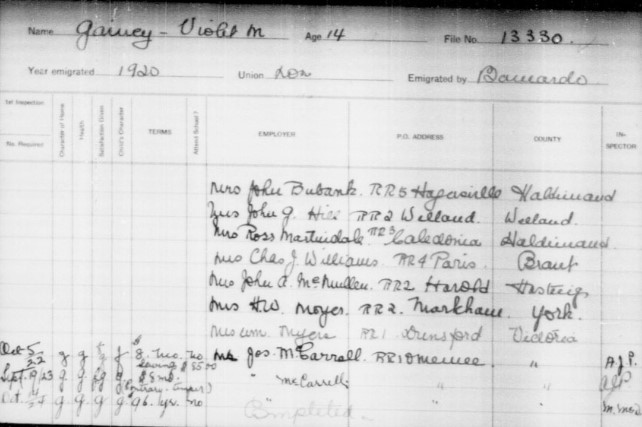 Name Gainey - Violet M Age 14 File No. 13330.
Year emigrated 1920 Union Lon Emigrated by Barnardo
1st Inspection
No. Required Character of Home Health Satisfaction Given Child's Character TERMS Attend School? EMPLOYER P.O. ADDRESS COUNTY INSPECTOR
Mrs John Bubank. RR5 Hagersville Haldimand
Mrs John G. Hill RR2 Welland. Welland.
Mrs Ross Martindale RR3 Caledonia Haldimand.
Mrs Chas J. Williams RR4 Paris. Brant
Mrs John A. McMullen. RR2 Harold Hastings
Mrs H.W. Moyer. RR2. Markham. York.
Mrs Wm. Myers RR1. Dunsford Victoria
Oct 5/22 g g g 8. mo. no Mrs Jos. McCarrell. RR1 Omemee. " A.J.P.
Saving $ 55.00
Sept. 19/23 g g fg g $8 mo. " McCarrell " "
Oct. g g g g 96. yr. no " "
Completed.